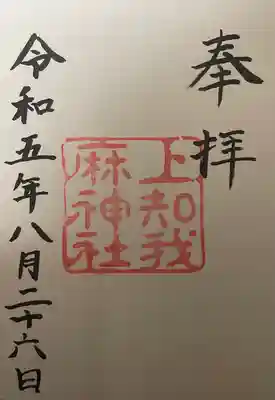 奉拝
上知我
麻神社
令和五年八月二十六日